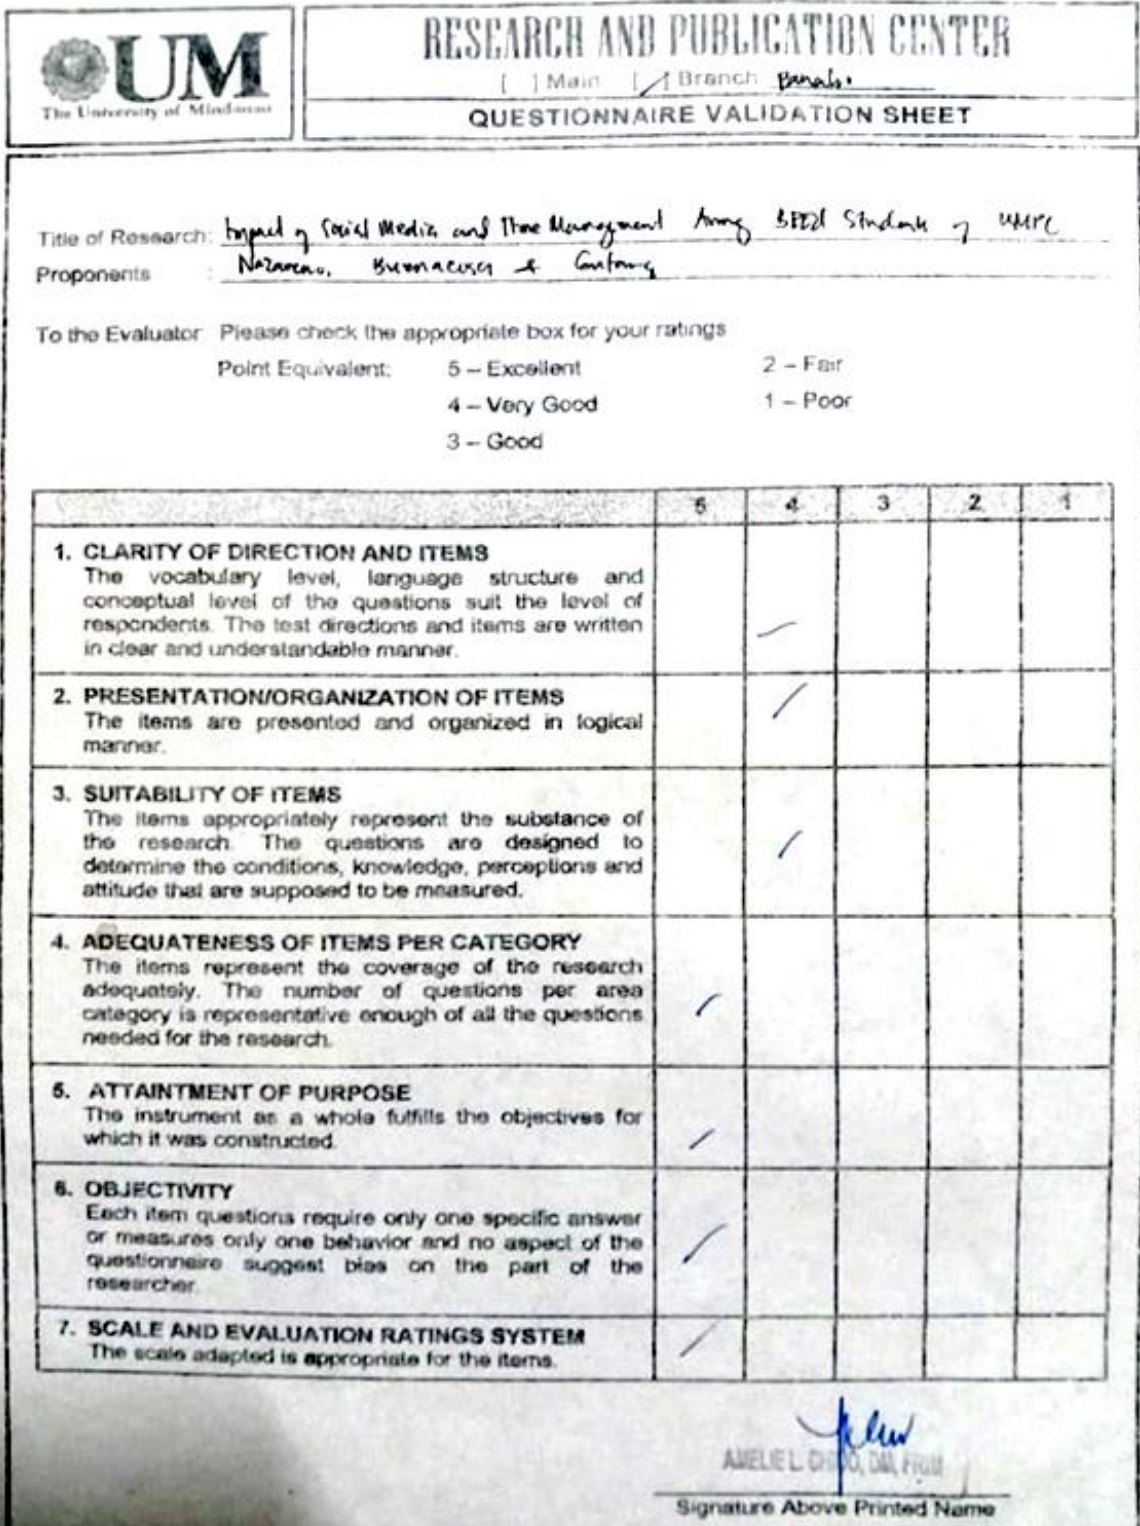 UM
The University of Mindanao
RESEARCH AND PUBLICATION CENTER
[ ] Main [/] Branch
QUESTIONNAIRE VALIDATION SHEET
Title of Research: Impact of Social Media and Time Management Among BEED Students of UMPC
Proponents : Nazareno, &
To the Evaluator: Please check the appropriate box for your ratings
Point Equivalent: 5 – Excellent 2 – Fair
4 – Very Good 1 – Poor
3 – Good
5 4 3 2 1
1. CLARITY OF DIRECTION AND ITEMS
The vocabulary level, language structure and
conceptual level of the questions suit the level of
respondents. The test directions and items are written
in clear and understandable manner.
2. PRESENTATION/ORGANIZATION OF ITEMS
The items are presented and organized in logical
manner.
3. SUITABILITY OF ITEMS
The items appropriately represent the substance of
the research. The questions are designed to
determine the conditions, knowledge, perceptions and
attitude that are supposed to be measured.
4. ADEQUATENESS OF ITEMS PER CATEGORY
The items represent the coverage of the research
adequately. The number of questions per area
category is representative enough of all the questions
needed for the research.
5. ATTAINTMENT OF PURPOSE
The instrument as a whole fulfills the objectives for
which it was constructed.
6. OBJECTIVITY
Each item questions require only one specific answer
or measures only one behavior and no aspect of the
questionnaire suggest bias on the part of the
researcher.
7. SCALE AND EVALUATION RATINGS SYSTEM
The scale adapted is appropriate for the items.
AMELIE L. DM,
Signature Above Printed Name